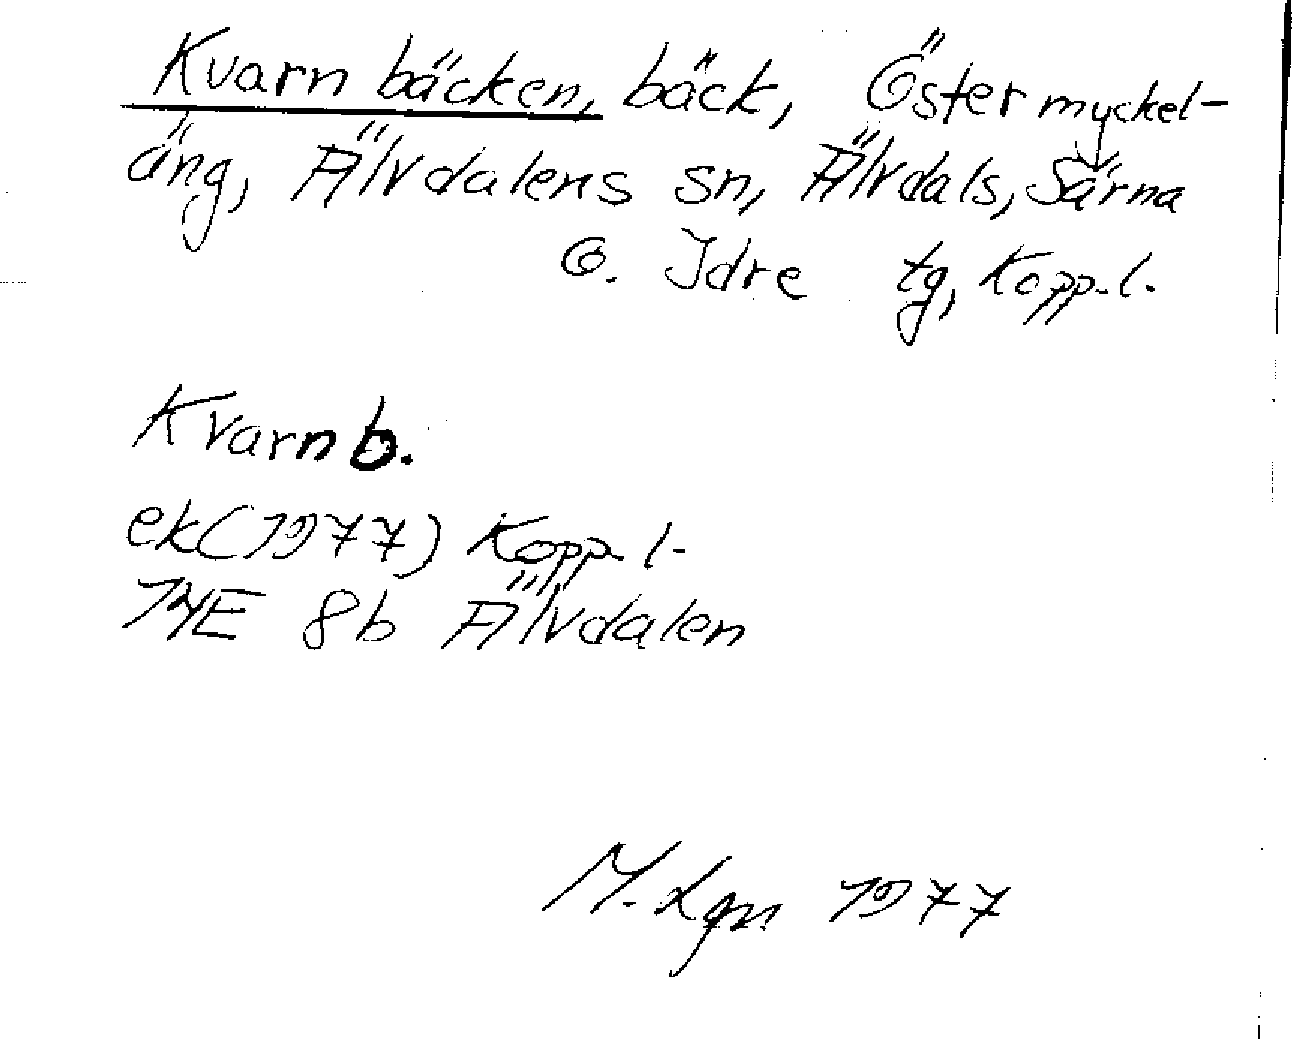 Kvarnbäcken, bäck, Östermyckel-
äng, Älvdalens sn, Älvdals, Särna
o. Idre tg, Kopp.l.
Kvarnb.
ek(1977) Kopp.l.
14E 8b Älvdalen
M. Lgn 1977